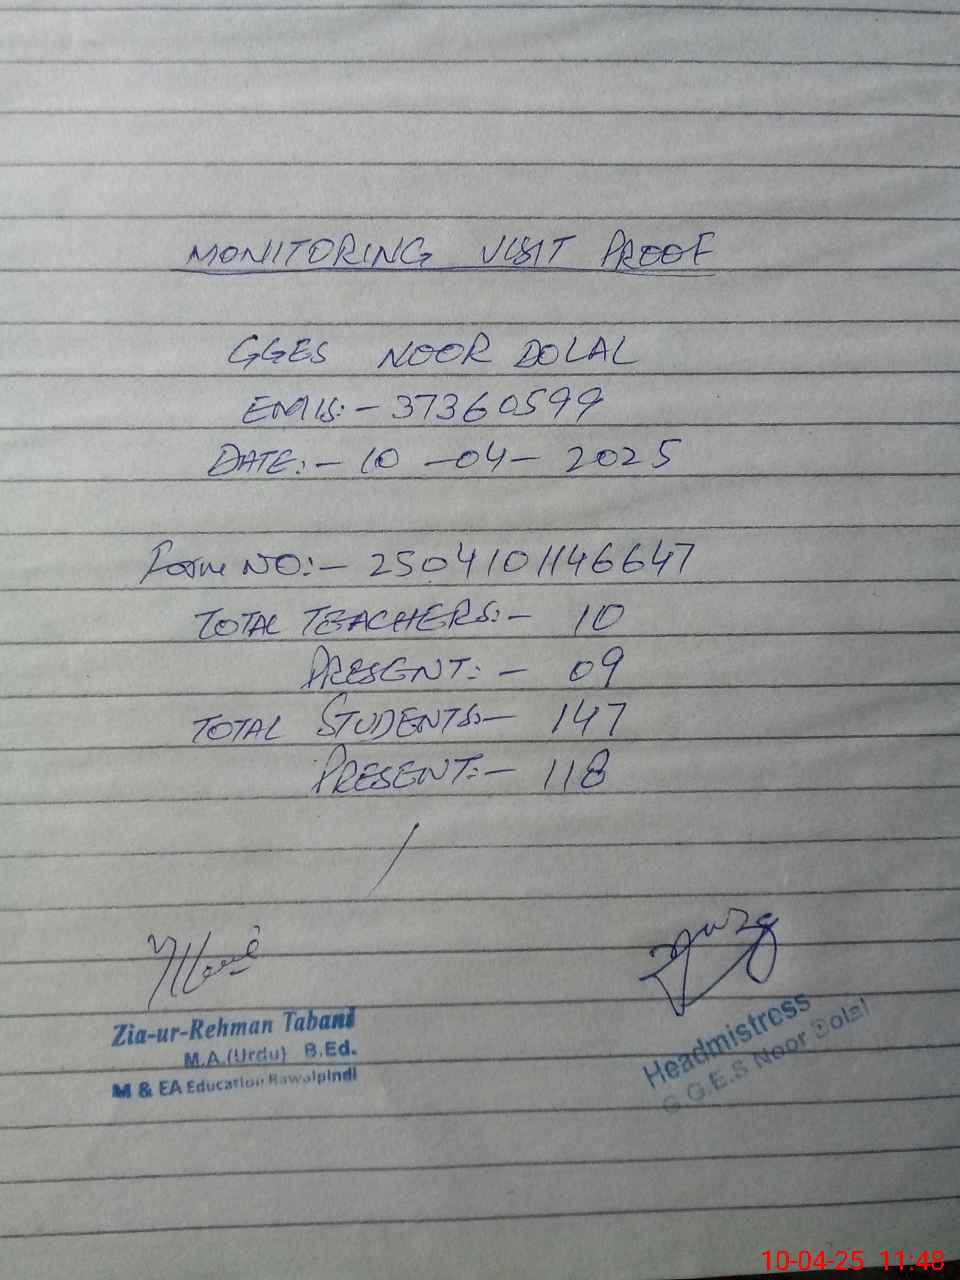 MONITORING VISIT PROOF
GGES NOOR DOLAL
EMIS:- 37360599
DATE:- 10-04-2025
Form NO:- 2504101146647
TOTAL TEACHERS:- 10
PRESENT:- 09
TOTAL STUDENTS:- 147
PRESENT:- 118
Zia-ur-Rehman Tabani
M.A.(Urdu) B.Ed.
M & EA Education Rawalpindi
Headmistress
G.G.E.S Noor Dolal
10-04-25 11:48